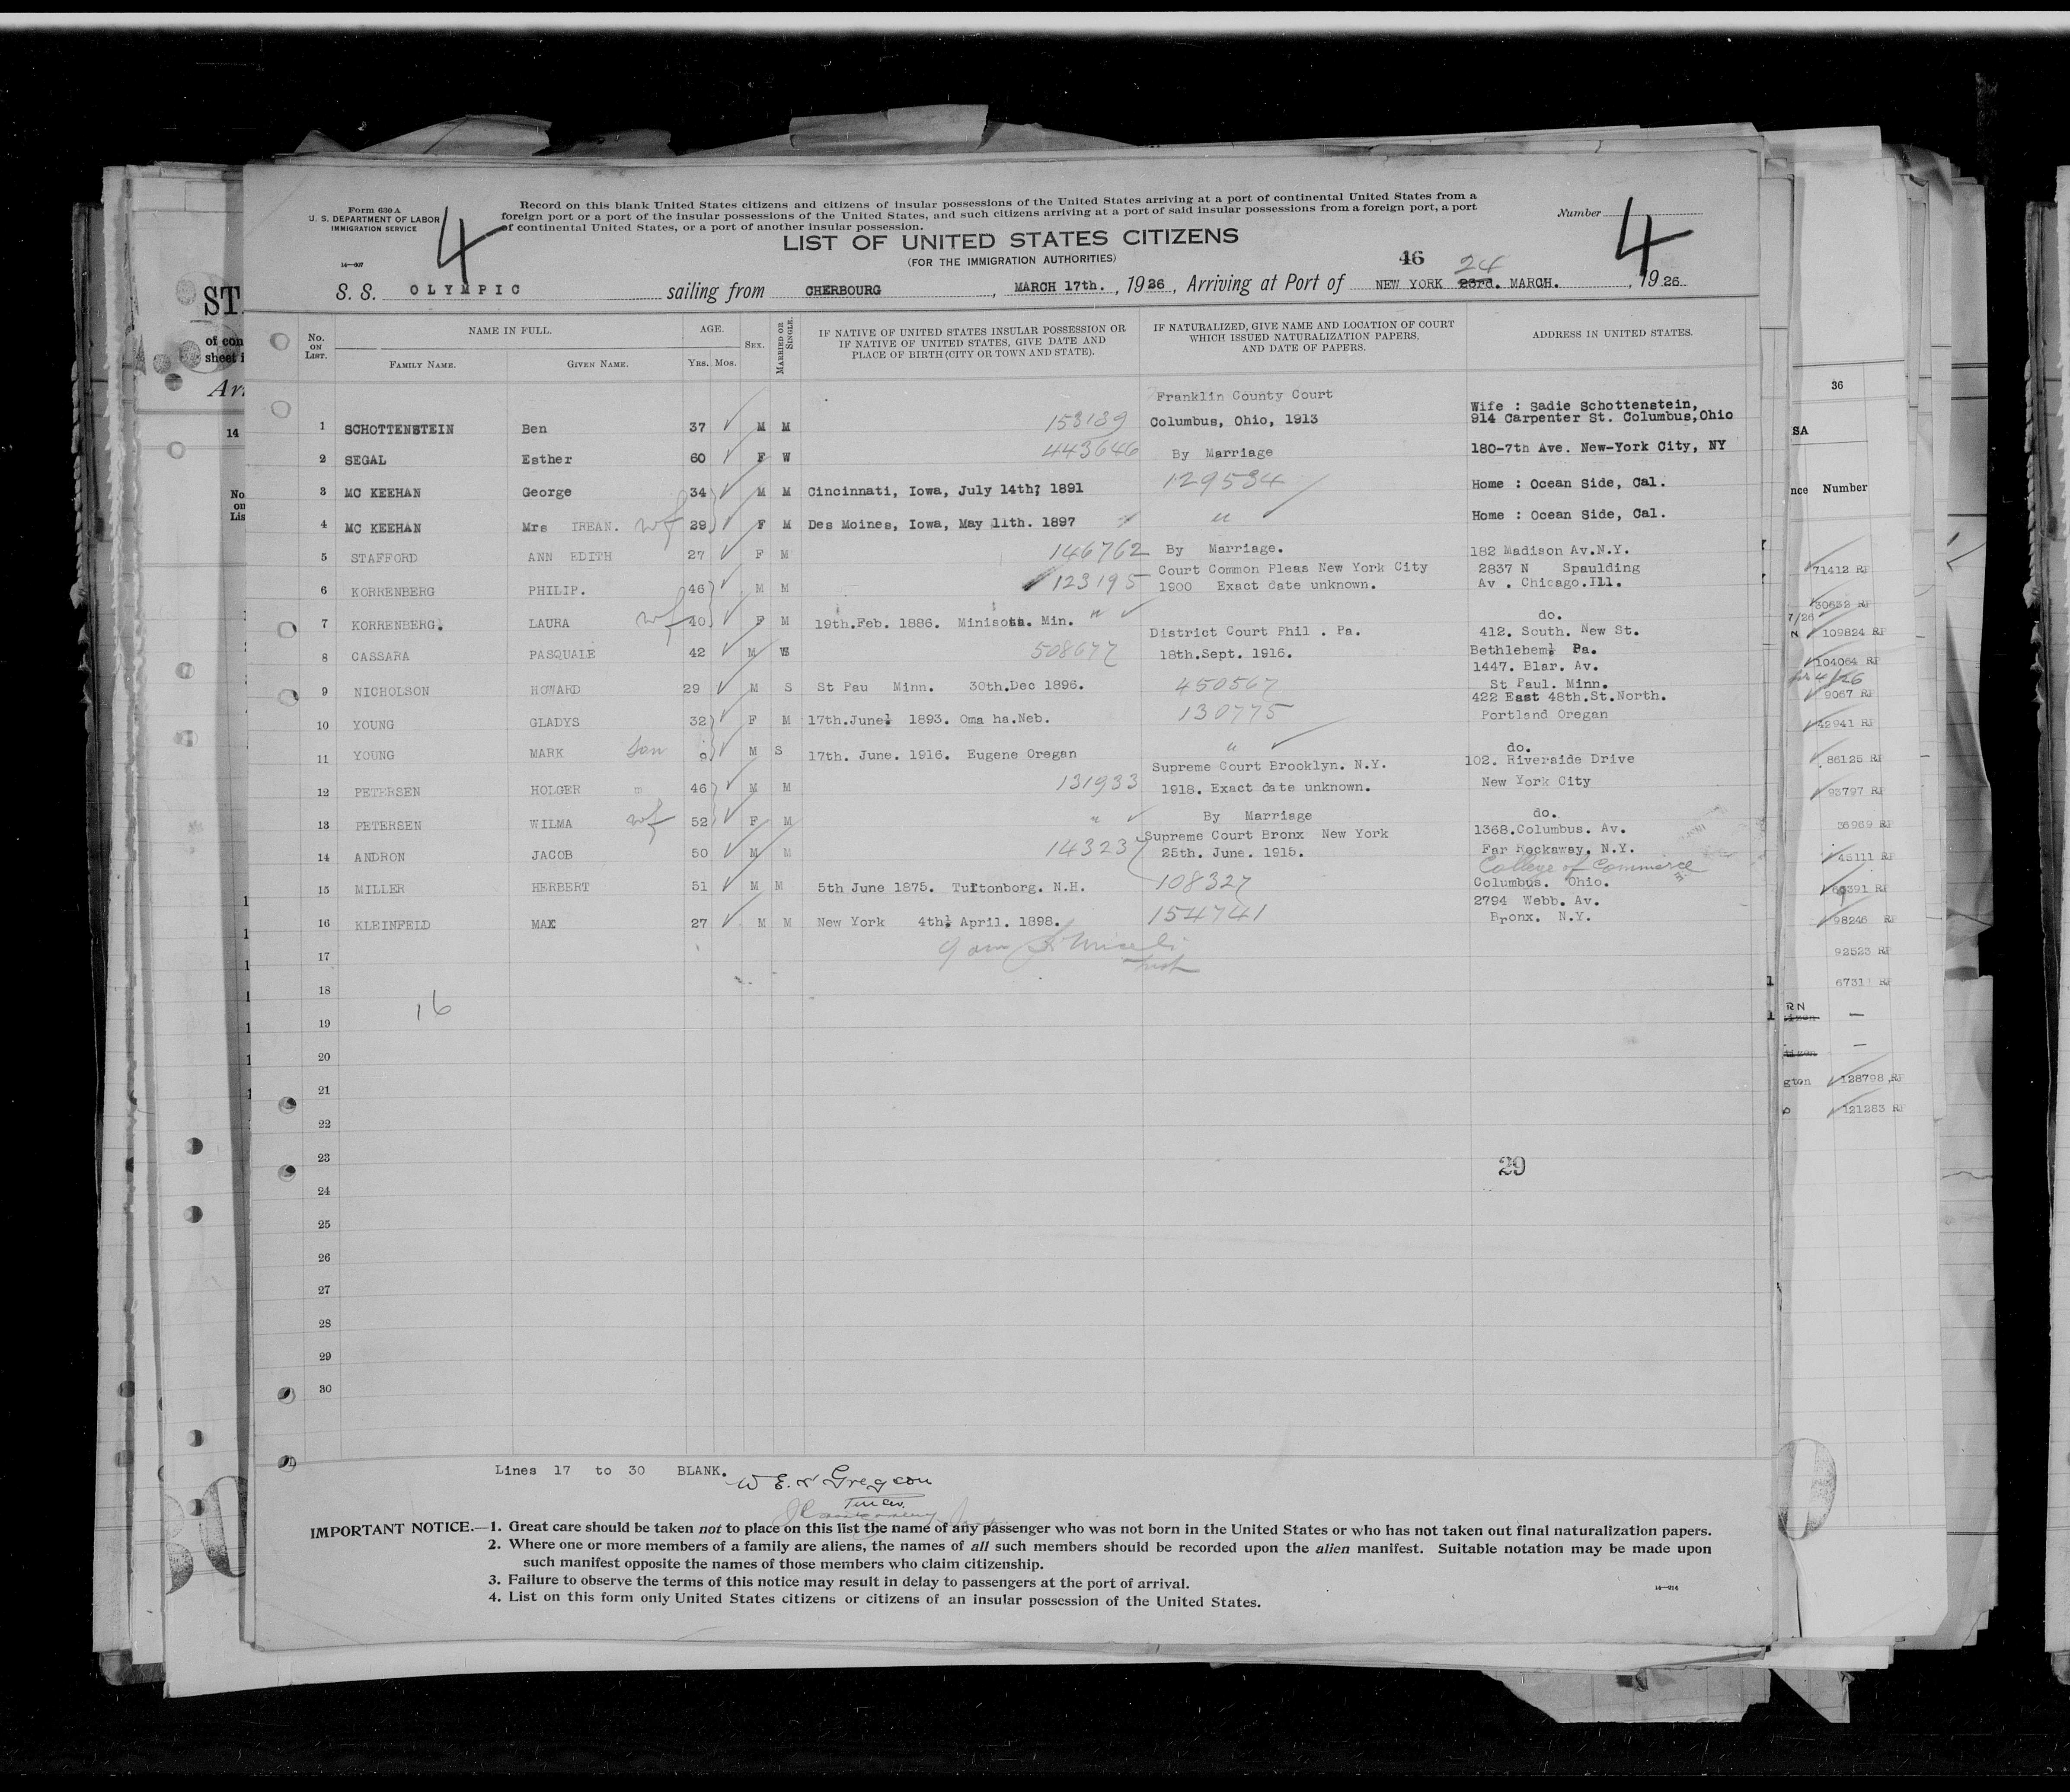 Form 630 A
U. S. DEPARTMENT OF LABOR
IMMIGRATION SERVICE
14—907
4
Record on this blank United States citizens and citizens of insular possessions of the United States arriving at a port of continental United States from a
foreign port or a port of the insular possessions of the United States, and such citizens arriving at a port of said insular possessions from a foreign port, a port
of continental United States, or a port of another insular possession.
Number
4
LIST OF UNITED STATES CITIZENS
(FOR THE IMMIGRATION AUTHORITIES)
46
24
S. S. OLYMPIC sailing from CHERBOURG, MARCH 17th., 1926, Arriving at Port of NEW YORK 23rd. MARCH., 1926
No. ON LIST. NAME IN FULL. FAMILY NAME. GIVEN NAME. AGE. YRS. MOS. SEX. MARRIED OR SINGLE. IF NATIVE OF UNITED STATES INSULAR POSSESSION OR IF NATIVE OF UNITED STATES, GIVE DATE AND PLACE OF BIRTH (CITY OR TOWN AND STATE). IF NATURALIZED, GIVE NAME AND LOCATION OF COURT WHICH ISSUED NATURALIZATION PAPERS, AND DATE OF PAPERS. ADDRESS IN UNITED STATES.
Franklin County Court Wife : Sadie Schottenstein,
1 SCHOTTENSTEIN Ben 37 M M 153139 Columbus, Ohio, 1913 914 Carpenter St. Columbus,Ohio
2 SEGAL Esther 60 F W 443646 By Marriage 180-7th Ave. New-York City, NY
3 MC KEEHAN George 34 M M Cincinnati, Iowa, July 14th, 1891 129534 Home : Ocean Side, Cal.
4 MC KEEHAN Mrs IREAN. wf 29 F M Des Moines, Iowa, May 11th. 1897 " Home : Ocean Side, Cal.
5 STAFFORD ANN EDITH 27 F M 146762 By Marriage. 182 Madison Av.N.Y.
Court Common Pleas New York City 2837 N Spaulding
6 KORRENBERG PHILIP. 46 M M 123195 1900 Exact date unknown. Av . Chicago.Ill.
7 KORRENBERG. LAURA wf 40 F M 19th.Feb. 1886. Minisota. Min. " do.
District Court Phil . Pa. 412. South. New St.
8 CASSARA PASQUALE 42 M 508677 18th.Sept. 1916. Bethlehem. Pa.
1447. Blar. Av.
9 NICHOLSON HOWARD 29 M S St Pau Minn. 30th.Dec 1896. 450567 St Paul. Minn.
422 East 48th.St.North.
10 YOUNG GLADYS 32 F M 17th.June. 1893. Oma ha.Neb. 130775 Portland Oregan
11 YOUNG MARK son 9 M S 17th. June. 1916. Eugene Oregan " do.
Supreme Court Brooklyn. N.Y. 102. Riverside Drive
12 PETERSEN HOLGER m 46 M M 131933 1918. Exact date unknown. New York City
13 PETERSEN WILMA wf 52 F M " By Marriage do.
Supreme Court Bronx New York 1368.Columbus. Av.
14 ANDRON JACOB 50 M M 14323 25th. June. 1915. Far Rockaway, N.Y.
College of Commerce
15 MILLER HERBERT 51 M M 5th June 1875. Tuftonborg. N.H. 108327 Columbus. Ohio.
2794 Webb. Av.
16 KLEINFELD MAX 27 M M New York 4th. April. 1898. 154741 Bronx. N.Y.
17
18
16
19
20
21
22
23
29
24
25
26
27
28
29
30
Lines 17 to 30 BLANK.
IMPORTANT NOTICE.—1. Great care should be taken not to place on this list the name of any passenger who was not born in the United States or who has not taken out final naturalization papers.
2. Where one or more members of a family are aliens, the names of all such members should be recorded upon the alien manifest. Suitable notation may be made upon
such manifest opposite the names of those members who claim citizenship.
3. Failure to observe the terms of this notice may result in delay to passengers at the port of arrival.
4. List on this form only United States citizens or citizens of an insular possession of the United States.
14—914
ST
of con
sheet i
Arr
14
No
on
Lis
36
SA
nce Number
71412 RP
30632 RP
7/26
N 109824 RP
104064 RP
9067 RP
42941 RP
86125 RP
93797 RP
36969 RP
45111 RP
98246 RP
92523 RP
RN
gton 128798 RP
121283 RP